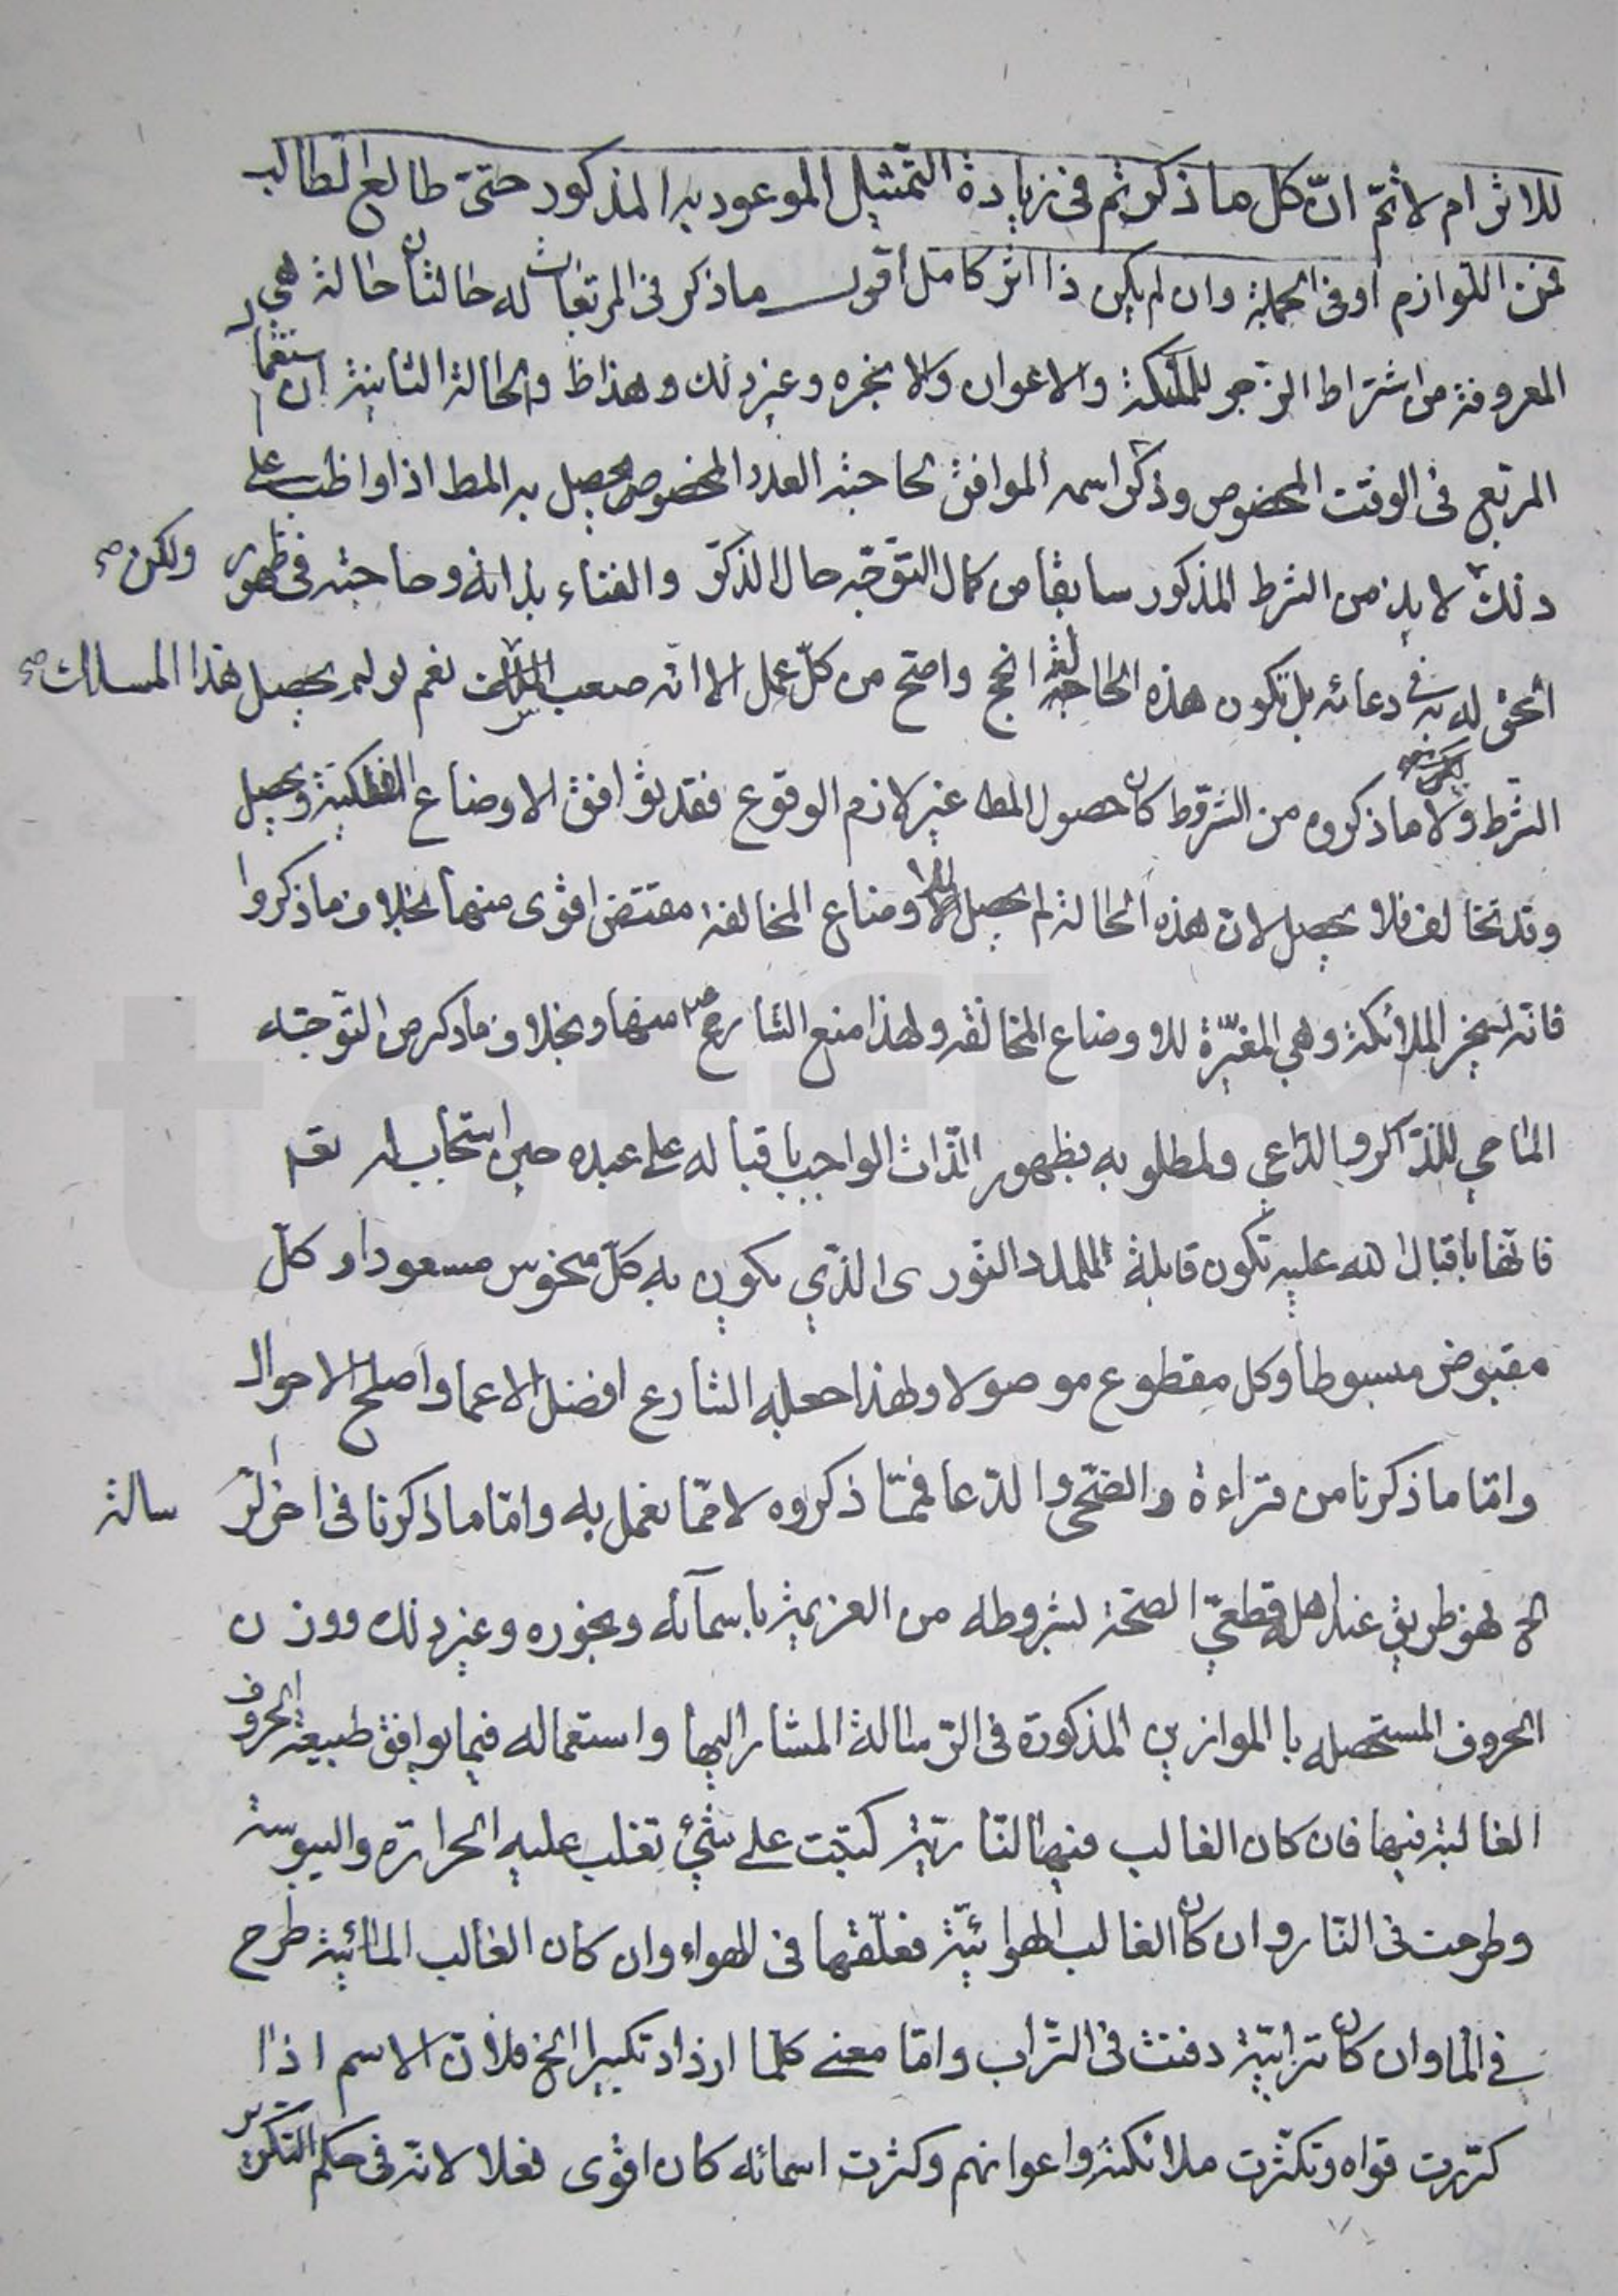 للاثر ام لا ثم ان كل ما ذكرتم فى زيادة التمثيل الموعود به المذكور حتى طالع الطالب
فمن اللوازم او فى الجملة وان لم يكن ذا اثر كامل اقول ما ذكر فى المربعات له حالتان حالة هى
المعروفة من اشتراط الزجر للملئكة والاعوان والابخره وغير ذلك وهذا ظ والحالة الثانية ان
المربع فى الوقت المخصوص وذكر اسمه الموافق لحاجته العدد المخصوص يحصل به المط اذا واظب على
ذلك لا بد من الشرط المذكور سابقا من كمال التوجّه حال الذكر والفناء بذاته وحاجته فى ظهور ولكن صح
الحق له فى دعائه بل تكون هذه الحاجة انجح واصح من كلّ عمل الا انه صعب نعم لو لم يحصل هذا المسالك صح
الشرط ولا ما ذكروه من الشروط كان حصول المط غير لازم الوقوع فقد توافق الاوضاع الفلكية ويحصل
وقد تخالف فلا يحصل لان هذه الحالة لم يحصل للاوضاع المخالفة مقتض اقوى منها بخلاف ما ذكروا
فانه تسخير الملائكة وهي المغيّرة للاوضاع المخالفه ولهذا منع الشارع ص منها وبخلاف ما ذكر من التوجّه
الماحي للذاكر والداعي ولمطلوبه بظهور الذات الواجب باقباله على عبده حين استجاب له نعم
فانها باقبال الله عليه تكون قابلة للمدد النّورى الذّي يكون به كلّ منحوس مسعودا وكلّ
مقبوض مبسوطا وكل مقطوع موصولا ولهذا جعله الشارع افضل الاعما واصلح الاحوال
وامّا ما ذكرنا من قراءة والضّحى والدّعا فممّا ذكروه لا ممّا نعمل به وامّا ما ذكرنا فى اخر الر سالة
الخ فهو طريق عند اهله قطعيّ الصحّة لشروطه من العزيمة باسمآئه وبخوره وغير ذلك ووزن
الحروف المستحصله با الموازين المذكورة فى الرّسالة المشار اليها واستعماله فيما يوافق طبيعة الحروف
الغالبة فيها فان كان الغالب فيها النّاريّة كتبت على شئ تغلب عليه الحرارة واليبوسة
وطرحت فى النّار وان كان الغالب الهوائيّة فعلّقها فى الهواء وان كان الغالب المائية طرح
في الما وان كان ترابيّة دفنت فى التراب وامّا معنى كلّما ازداد تكسيرا الخ فلانّ الاسم اذا
كرّرت قواه وتكثّرت ملائكته واعوانهم وكثرت اسمائه كان اقوى فعلا لانّه فى حكم التكرير